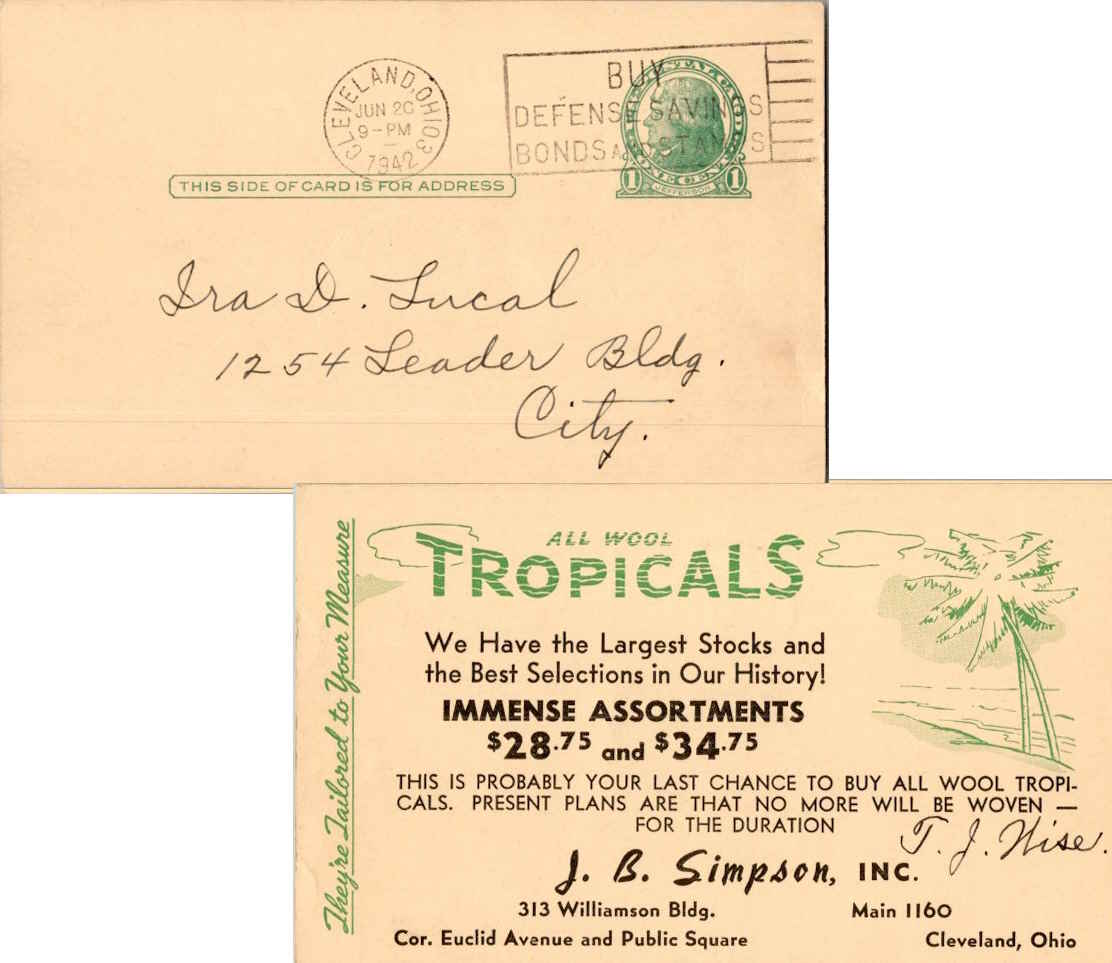 CLEVELAND, OHIO 3
JUN 20
9-PM
1942
BUY
DEFENSE SAVINGS
BONDS AND STAMPS
THIS SIDE OF CARD IS FOR ADDRESS
1 JEFFERSON 1
Ira D. Lucal
1254 Leader Bldg.
City.
They're Tailored to Your Measure
ALL WOOL
TROPICALS
We Have the Largest Stocks and
the Best Selections in Our History!
IMMENSE ASSORTMENTS
$28.75 and $34.75
THIS IS PROBABLY YOUR LAST CHANCE TO BUY ALL WOOL TROPI-
CALS. PRESENT PLANS ARE THAT NO MORE WILL BE WOVEN —
FOR THE DURATION
T. J. Wise.
J. B. Simpson, INC.
313 Williamson Bldg. Main 1160
Cor. Euclid Avenue and Public Square Cleveland, Ohio